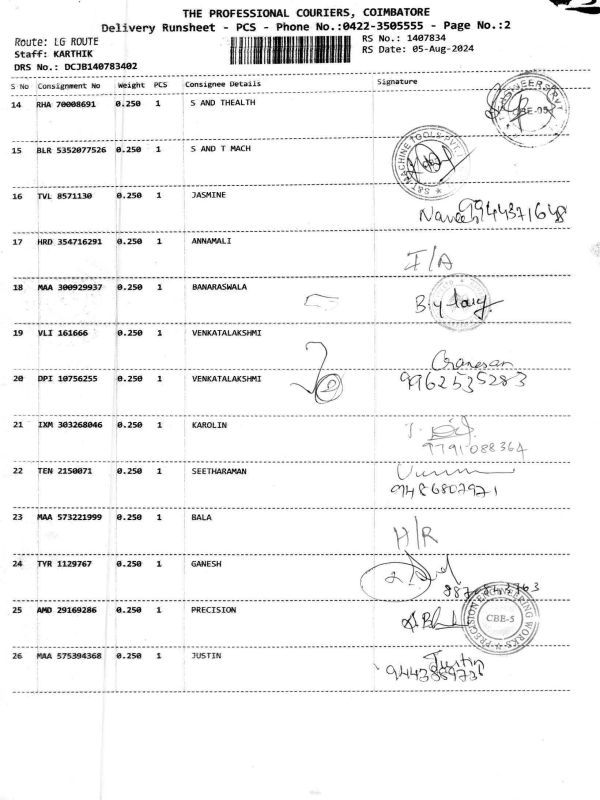 THE PROFESSIONAL COURIERS, COIMBATORE
Delivery Runsheet - PCS - Phone No.:0422-3505555 - Page No.:2
Route: LG ROUTE
RS No.: 1407834
Staff: KARTHIK
RS Date: 05-Aug-2024
DRS No.: DCJB140783402
S No Consignment No Weight PCS Consignee Details Signature
14 RHA 70008691 0.250 1 S AND THEALTH
15 BLR 5352077526 0.250 1 S AND T MACH
S&T MACHINE TOOLS PVT
16 TVL 8571130 0.250 1 JASMINE
9944371648
17 HRD 354716291 0.250 1 ANNAMALI
I/A
18 MAA 300929937 0.250 1 BANARASWALA
19 VLI 161666 0.250 1 VENKATALAKSHMI
20 DPI 10756255 0.250 1 VENKATALAKSHMI
9962535283
21 IXM 303268046 0.250 1 KAROLIN
9791088364
22 TEN 2150071 0.250 1 SEETHARAMAN
9486807971
23 MAA 573221999 0.250 1 BALA
H/R
24 TYR 1129767 0.250 1 GANESH
25 AMD 29169286 0.250 1 PRECISION
PRECISION ENGINEERING WORKS
CBE-5
26 MAA 575394368 0.250 1 JUSTIN
Justin